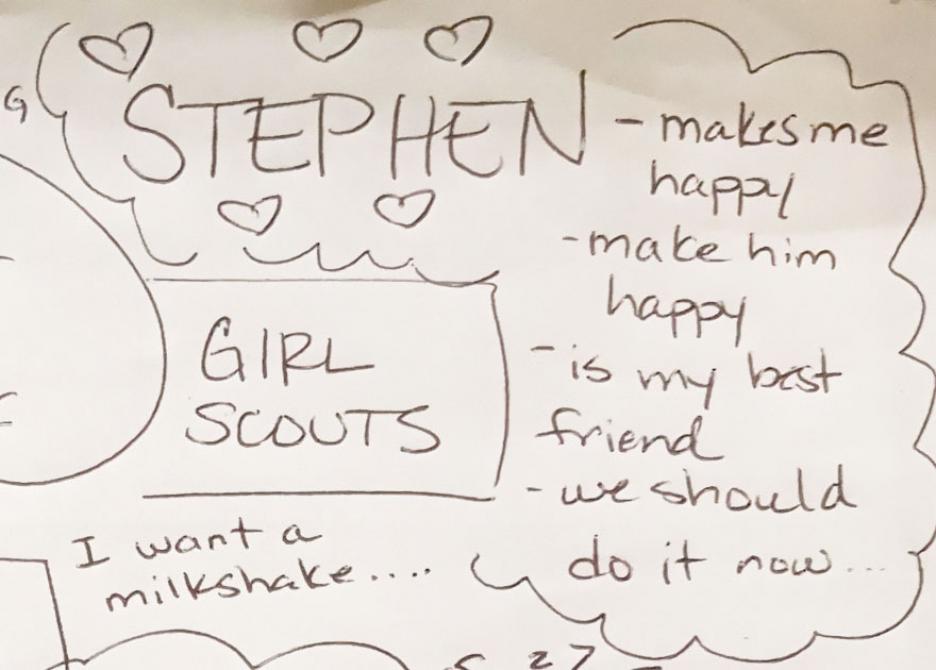 G
STEPHEN
- makes me
happy
- make him
happy
- is my best
friend
- we should
do it now...
GIRL
SCOUTS
I want a
milkshake....
27